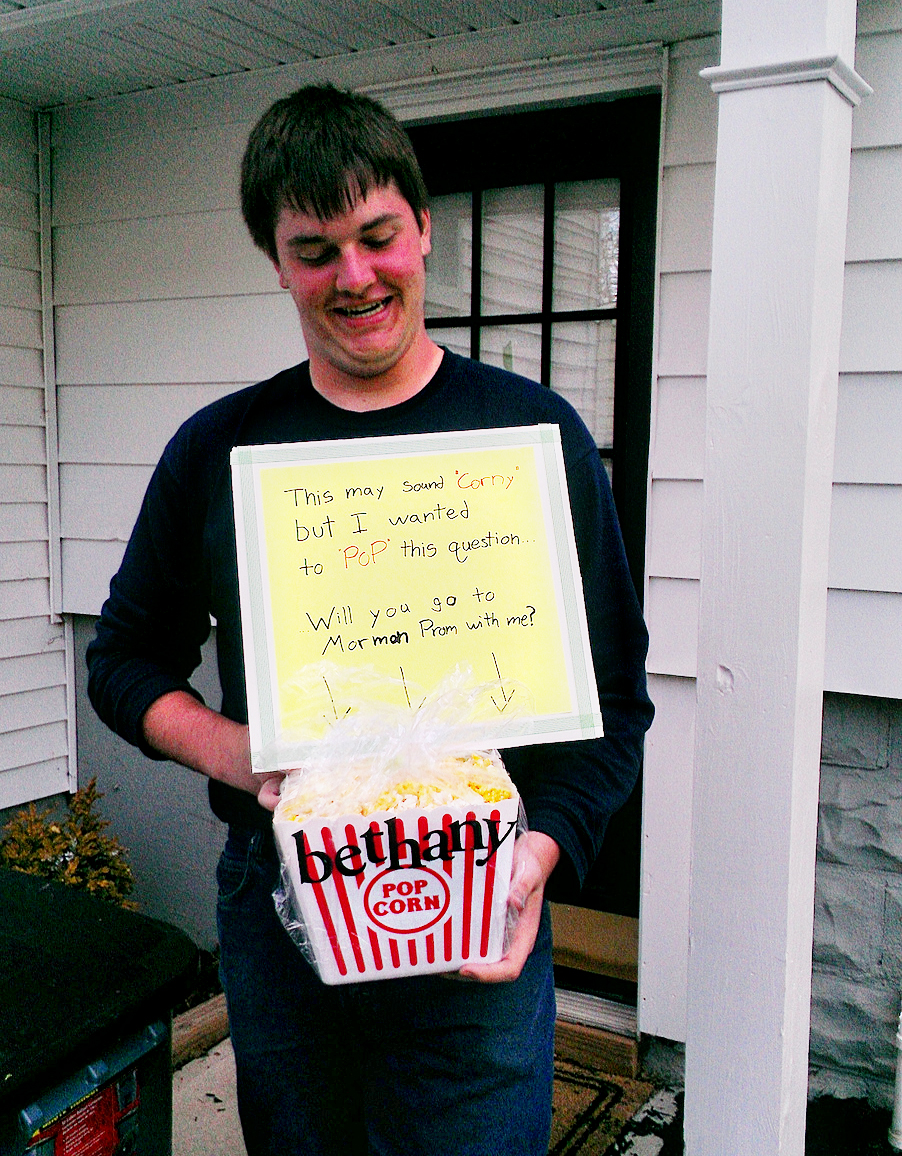 This may sound "Corny"
but I wanted
to "POP" this question...
...Will you go to
Mormon Prom with me?
bethany
POP
CORN